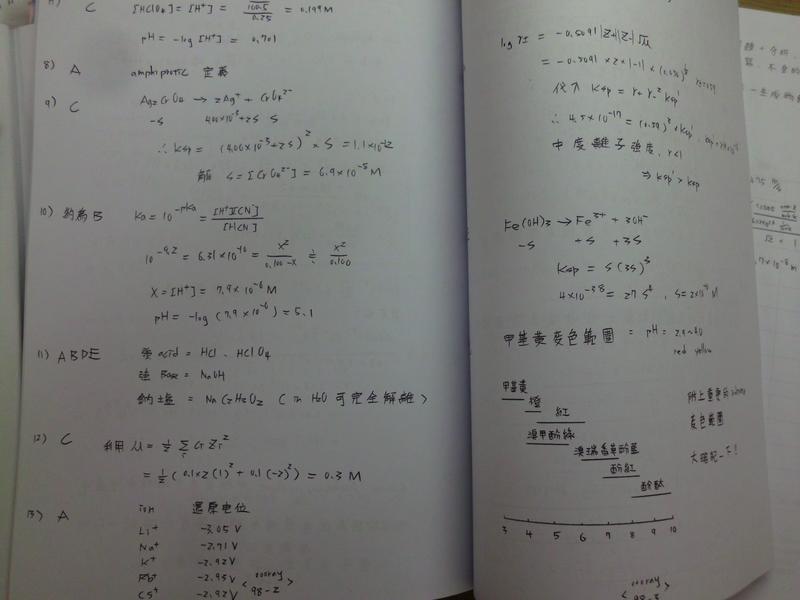 C [HClO4] = [H+] = 100.5 / 0.25 = 0.199 M
pH = -log [H+] = 0.701
8) A amphiprotic 定義
9) C Ag2CrO4 → 2Ag+ + CrO4^2-
-S 4.06×10^-3+2S S
∴ Ksp = (4.06×10^-3+2S)^2 × S = 1.1×10^-12
解 S = [CrO4^2-] = 6.9×10^-8 M
10) 約為 B Ka = 10^-pKa = [H+][CN-] / [HCN]
10^-9.2 = 6.31×10^-10 = x^2 / 0.100-x ≒ x^2 / 0.100
X = [H+] = 7.9×10^-6 M
pH = -log (7.9×10^-6) = 5.1
11) ABDE 強 acid = HCl、HClO4
強 Base = NaOH
鈉鹽 = NaC2H3O2 (in H2O 可完全解離)
12) C 利用 μ = 1/2 Σ Ci Zi^2
= 1/2 (0.1×2(1)^2 + 0.1(-2)^2) = 0.3 M
13) A ion 還原电位
Li+ -3.05 V
Na+ -2.71 V
K+ -2.92 V
Rb+ -2.95 V
Cs+ -2.92 V
98-2
= -0.5091 |Z+||Z-| √μ
= -0.5091 × 2 × |-1| ×
代入 Ksp = r+ r-^2 Ksp'
∴ 4.5×10^-17 =
中度離子強度, r<1
⇒ Ksp' > Ksp
Fe(OH)3 → Fe^3+ + 3OH-
-S +S +3S
Ksp = S(3S)^3
4×10^-38 = 27 S^4 , S=2×10^-10 M
甲基黃变色範圍 = pH = 2.9~4.0
red yellow
甲基黃
橙
紅
溴甲酚綠
溴瑞香草酚藍
酚紅
酚酞
附上重要的
变色範圍
大略記一下!
3 4 5 6 7 8 9 10